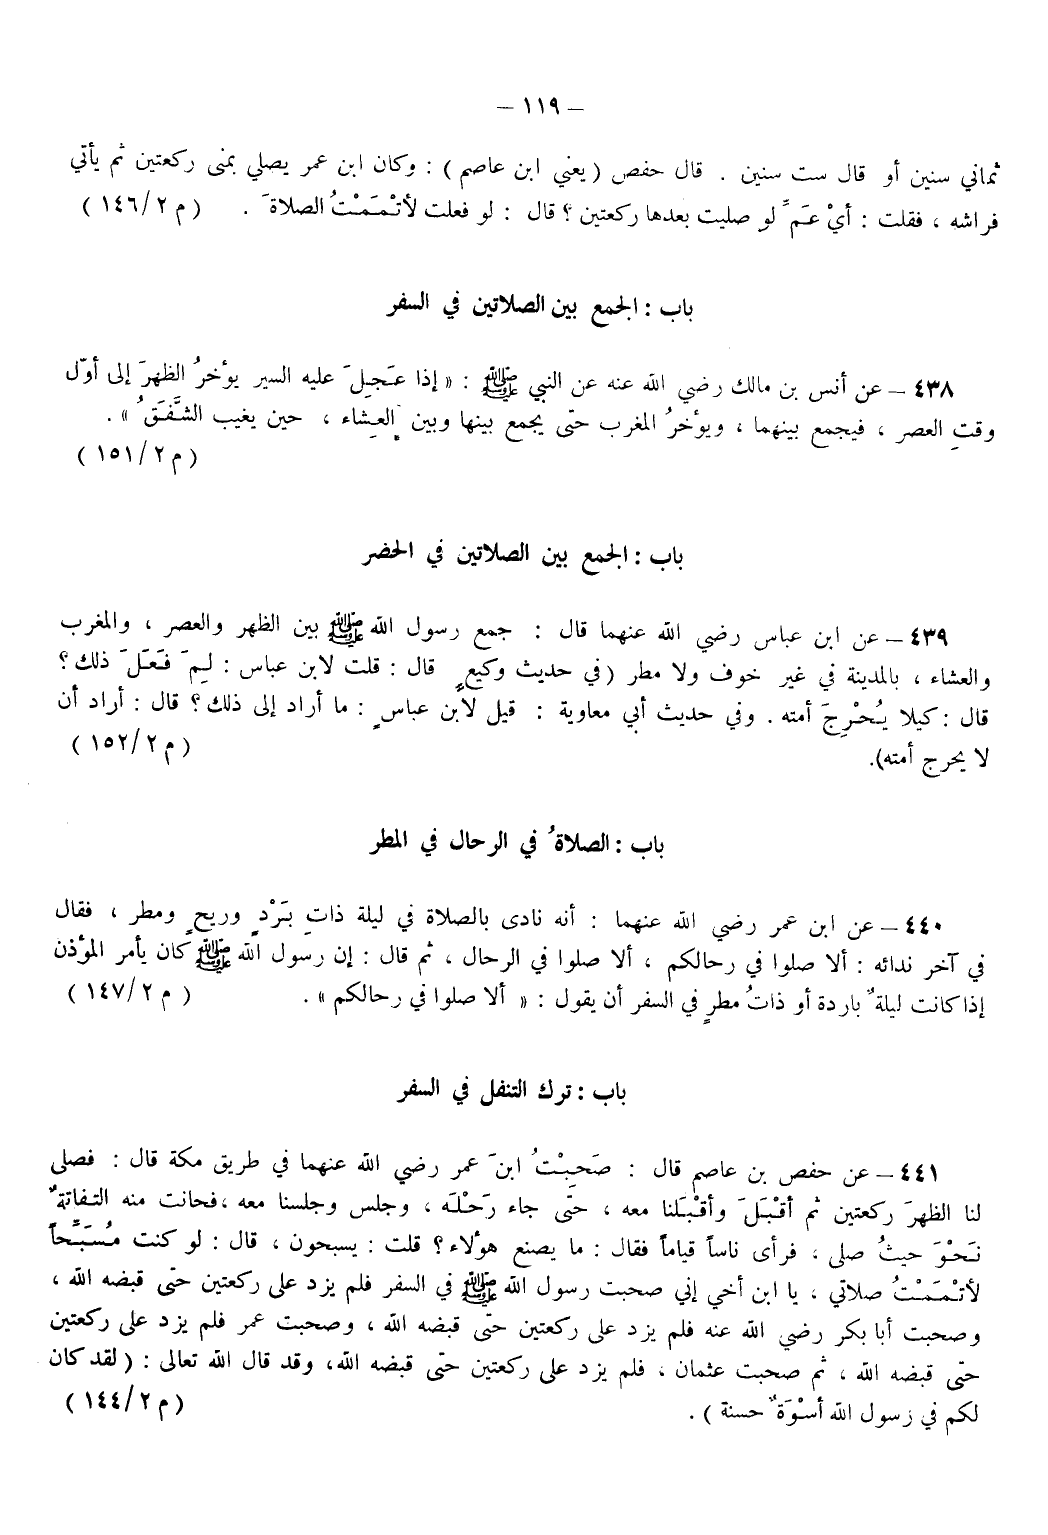 – ١١٩ –
ثماني سنين أو قال ست سنين . قال حفص ( يعني ابن عاصم ) : وكان ابن عمر يصلي بمنى ركعتين ثم يأتي
فراشه ، فقلت : أيْ عَمِّ لو صليت بعدها ركعتين ؟ قال : لو فعلت لأتْمَمْتُ الصلاةَ . ( م ١٤٦/٢ )
باب : الجمع بين الصلاتين في السفر
٤٣٨ – عن أنس بن مالك رضي الله عنه عن النبي ﷺ : « إذا عَجِلَ عليه السير يؤخرُ الظهرَ إلى أوّل
وقتِ العصر ، فيجمع بينهما ، ويؤخرُ المغرب حتّى يجمع بينها وبين العِشاء ، حين يغيب الشَّفَقُ » .
( م ١٥١/٢ )
باب : الجمع بين الصلاتين في الحضر
٤٣٩ – عن ابن عباس رضي الله عنهما قال : جمع رسول الله ﷺ بين الظهر والعصر ، والمغرب
والعشاء ، بالمدينة في غير خوف ولا مطر ( في حديث وكيعٍ قال : قلت لابن عباس : لِمَ فَعَلَ ذلك ؟
قال : كيلا يُحْرِجَ أمته . وفي حديث أبي معاوية : قيل لابن عباسٍ : ما أراد إلى ذلك ؟ قال : أراد أن
لا يحرج أمته). ( م ١٥٢/٢ )
باب : الصلاةُ في الرحال في المطر
٤٤٠ – عن ابن عمر رضي الله عنهما : أنه نادى بالصلاة في ليلة ذاتِ بَرْدٍ وريحٍ ومطر ، فقال
في آخر ندائه : ألا صلوا في رحالكم ، ألا صلوا في الرحال ، ثم قال : إن رسول الله ﷺ كان يأمر المؤذن
إذا كانت ليلةٌ باردة أو ذاتُ مطرٍ في السفر أن يقول : « ألا صلوا في رحالكم » . ( م ١٤٧/٢ )
باب : ترك التنفل في السفر
٤٤١ – عن حفص بن عاصم قال : صَحِبْتُ ابنَ عمر رضي الله عنهما في طريق مكة قال : فصلى
لنا الظهرَ ركعتين ثم أقْبَلَ وأقْبَلنا معه ، حتّى جاء رَحْلَه ، وجلس وجلسنا معه ،فحانت منه التفاتةٌ
نَحْوَ حيثُ صلى ، فرأى ناساً قياماً فقال : ما يصنع هؤلاء ؟ قلت : يسبحون ، قال : لو كنت مُسَبِّحاً
لأتْمَمْتُ صلاتي ، يا ابن أخي إني صحبت رسول الله ﷺ في السفر فلم يزد على ركعتين حتّى قبضه الله ،
وصحبت أبا بكر رضي الله عنه فلم يزد على ركعتين حتّى قبضه الله ، وصحبت عمر فلم يزد على ركعتين
حتّى قبضه الله ، ثم صحبت عثمان ، فلم يزد على ركعتين حتّى قبضه الله، وقد قال الله تعالى : ( لقد كان
لكم في رسول الله أسْوَةٌ حسنة ) . ( م ١٤٤/٢ )